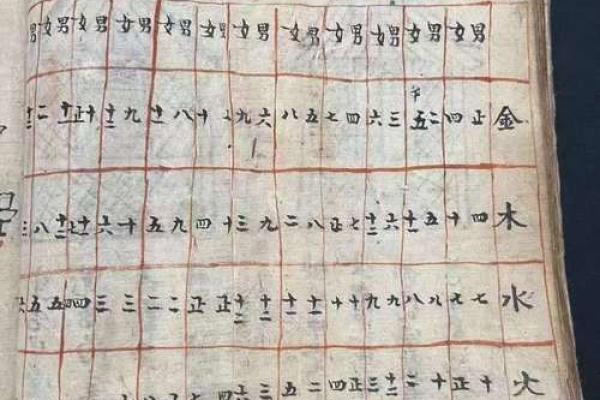 男女男女男女男女男女男女男女男女男女男女男女男
金正四二五三六四七五八六九十八十一九十二十正十一二十二
木四十五十一六十二七正八二九三十四九五十六十一十二八三
水七七八八九九十十十一十一十二十二正正二二三三四四五五
火十正十二十二三正四二五三十二四